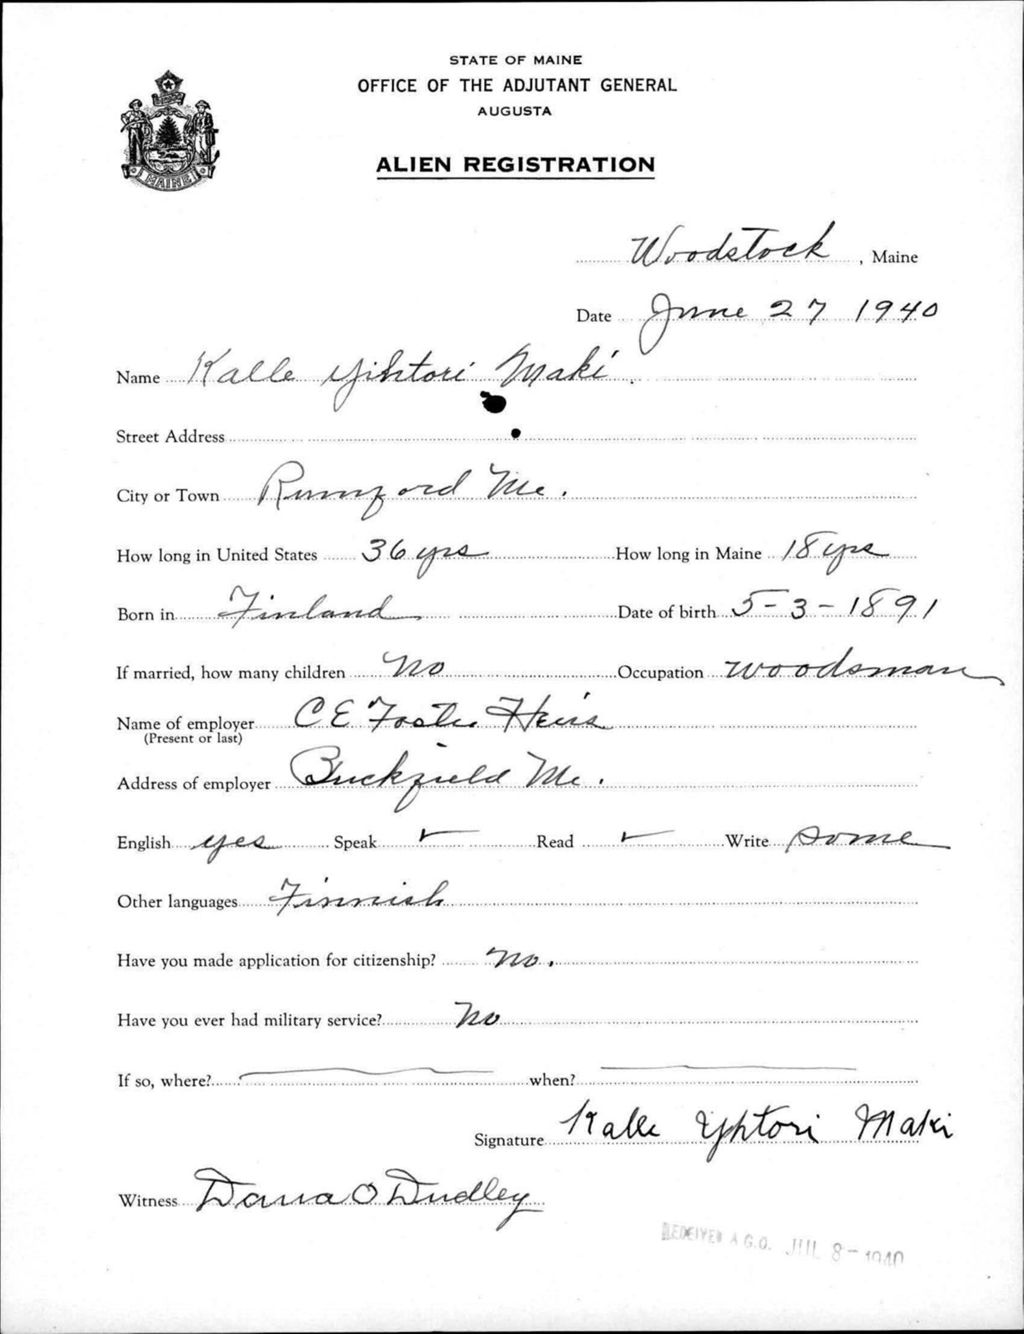 STATE OF MAINE
OFFICE OF THE ADJUTANT GENERAL
AUGUSTA
ALIEN REGISTRATION
MAINE
Woodstock, Maine
Date June 27 1940
Name Kalle Yihtori Maki.
Street Address
City or Town Rumford Me.
How long in United States 36 yrs How long in Maine 18 yrs
Born in Finland Date of birth 5-3-1891
If married, how many children No Occupation woodsman
Name of employer C E Foster Heirs
(Present or last)
Address of employer Buckfield Me.
English yes Speak ✓ Read ✓ Write some
Other languages Finnish
Have you made application for citizenship? No.
Have you ever had military service? No
If so, where? when?
Signature Kalle Yhtori Maki
Witness Dana O Dudley
RECEIVED A.G.O. JUL 8-1940